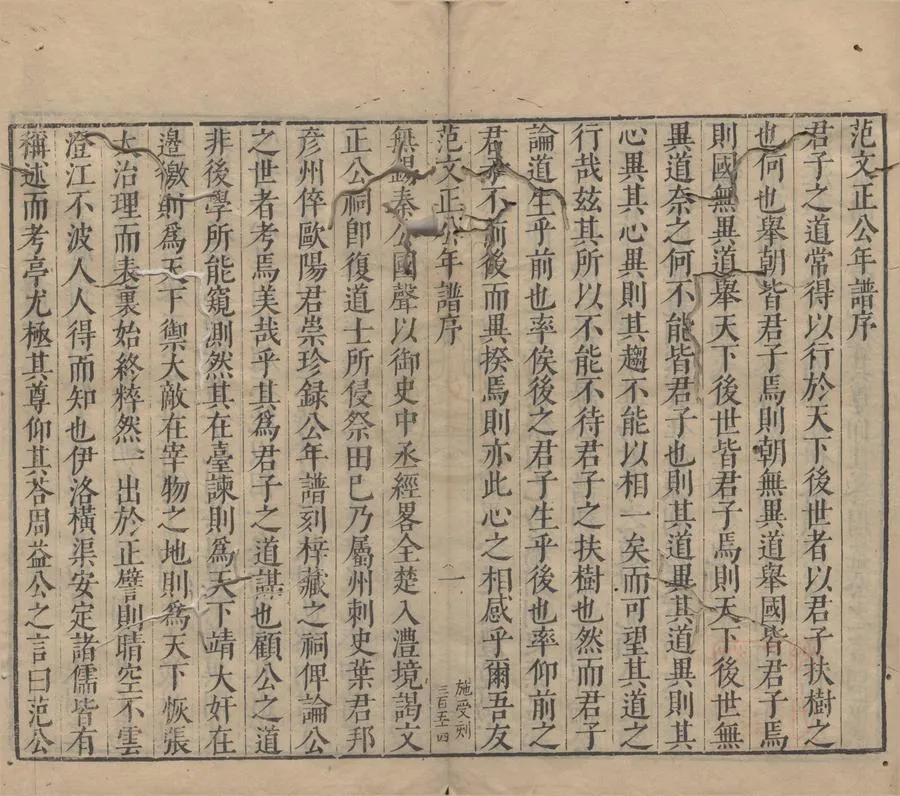 范文正公年譜序
君子之道常得以行於天下後世者以君子扶樹之
也何也舉朝皆君子焉則朝無異道舉國皆君子焉
則國無異道舉天下後世皆君子焉則天下後世無
異道奈之何不能皆君子也則其道異其道異則其
心異其心異則其趨不能以相一矣而可望其道之
行哉玆其所以不能不待君子之扶樹也然而君子
論道生乎前也率俟後之君子生乎後也率仰前之
君子不前後而異揆焉則亦此心之相感乎爾吾友
范文正公年譜序
一
施受刻
三百五四
無錫秦公國聲以御史中丞經畧全楚入澧境謁文
正公祠卽復道士所侵祭田巳乃屬州刺史葉君邦
彥州倅歐陽君崇珍錄公年譜刻梓藏之祠俾論公
之世者考焉美哉乎其爲君子之道謀也顧公之道
非後學所能窺測然其在臺諫則爲天下靖大奸在
邊徼則爲天下禦大敵在宰物之地則爲天下恢張
大治理而表裏始終粹然一出於正譬則晴空不雲
澄江不波人人得而知也伊洛橫渠安定諸儒皆有
稱述而考亭尤極其尊仰其荅周益公之言曰范公